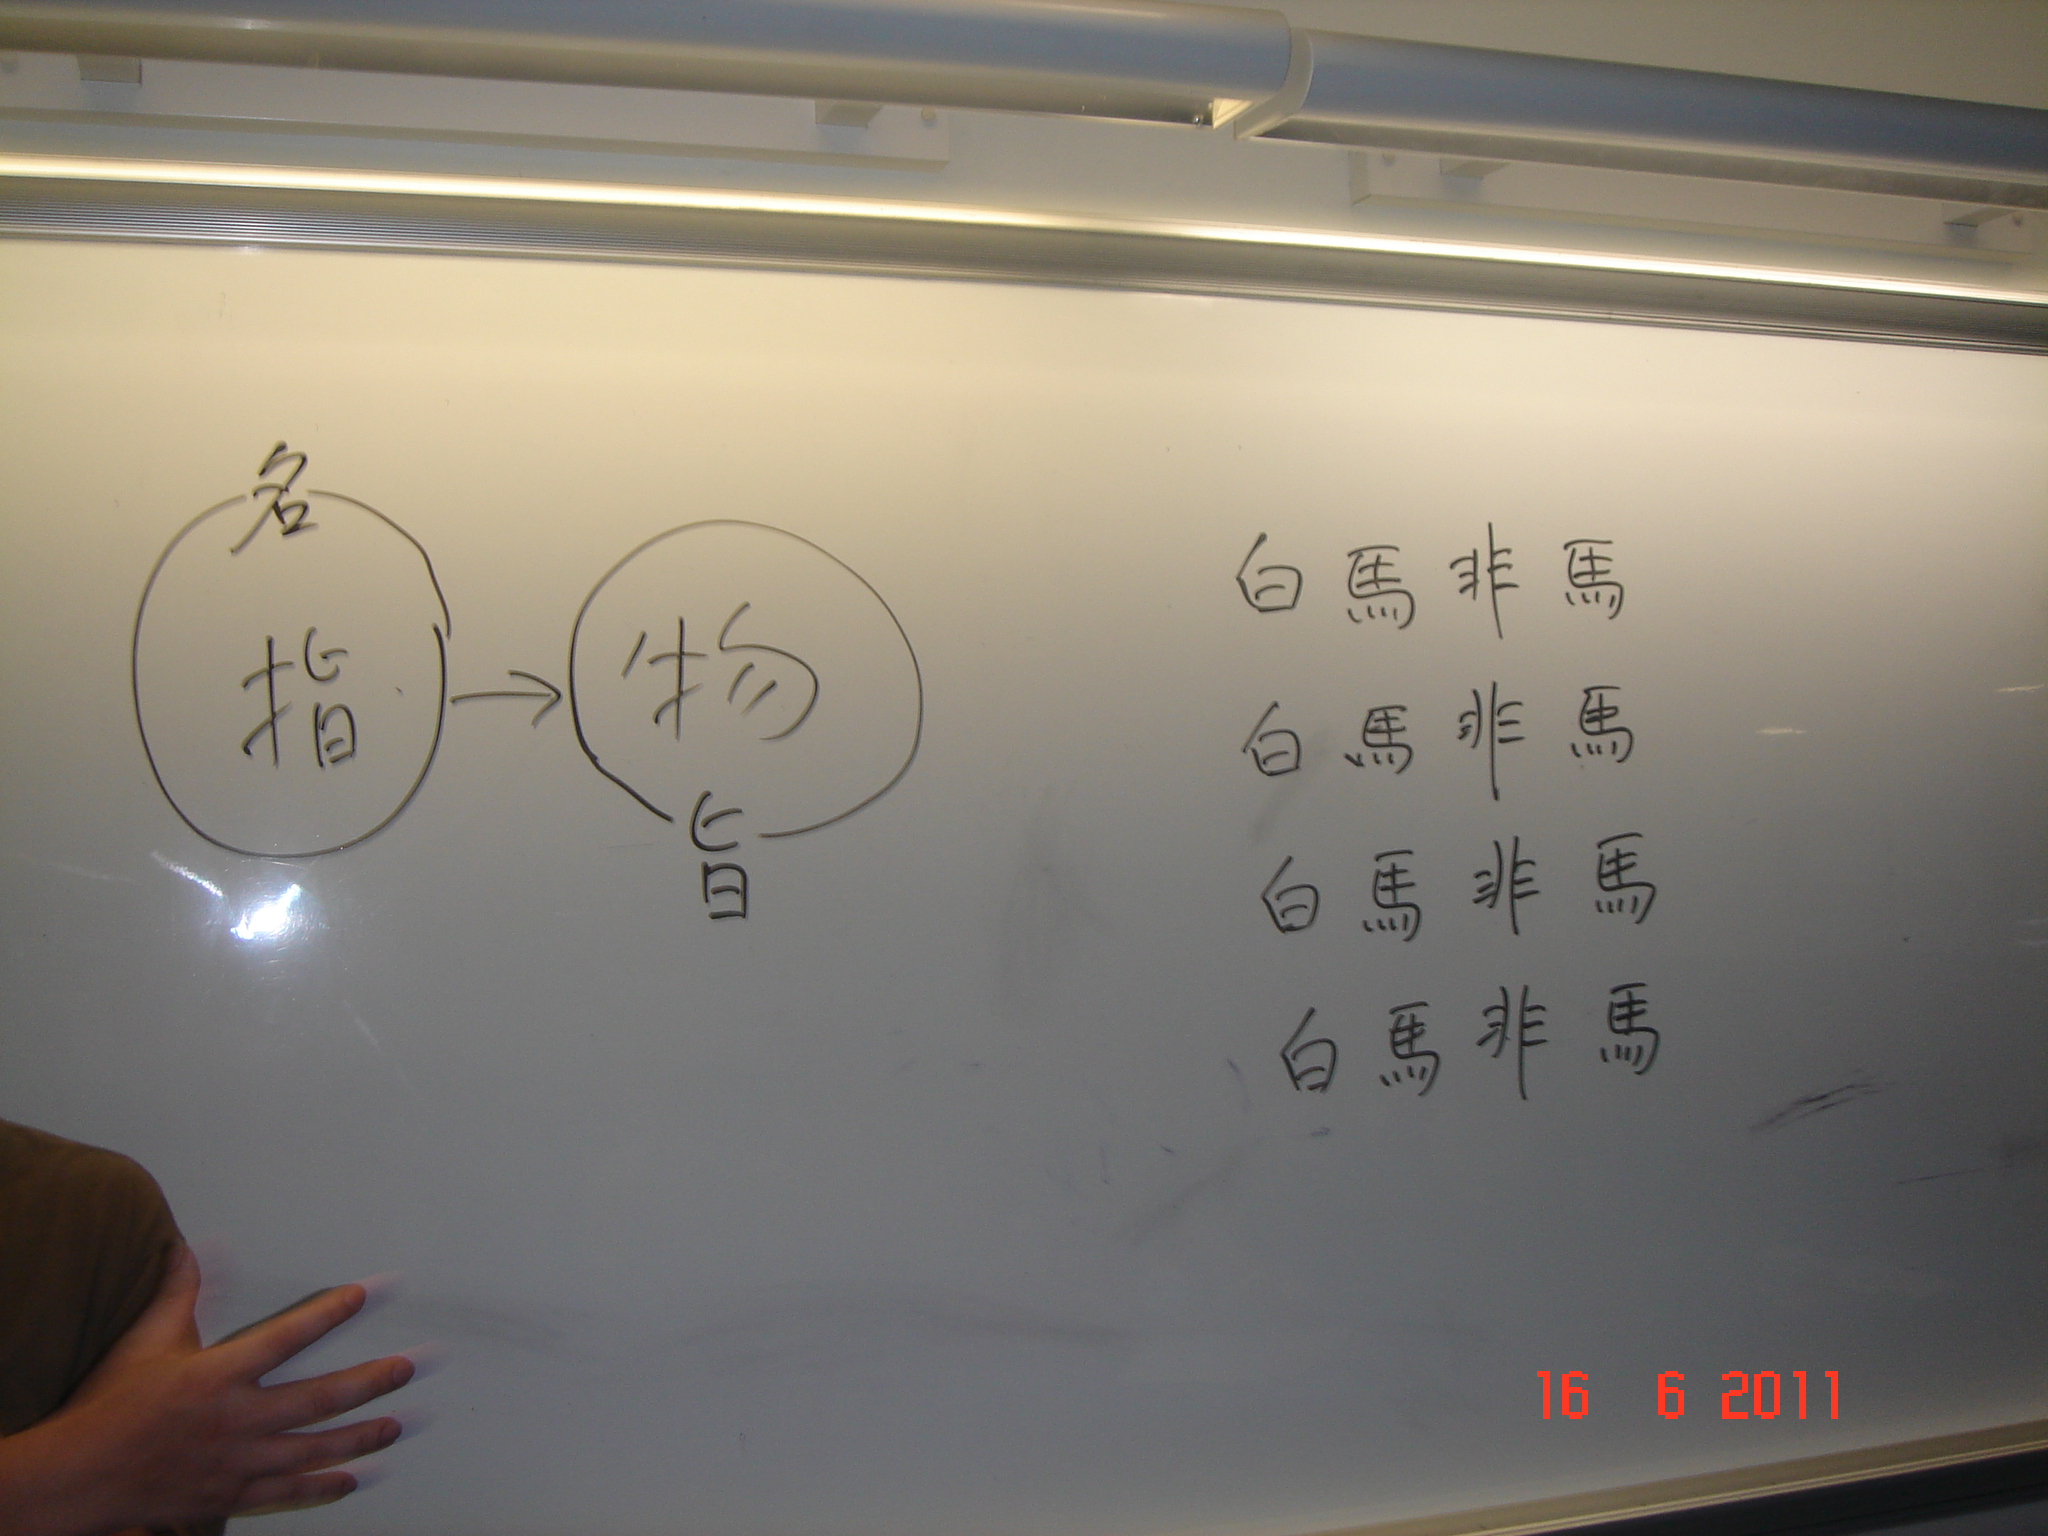 名
指 → 物
旨
白馬非馬
白馬非馬
白馬非馬
白馬非馬
16 6 2011